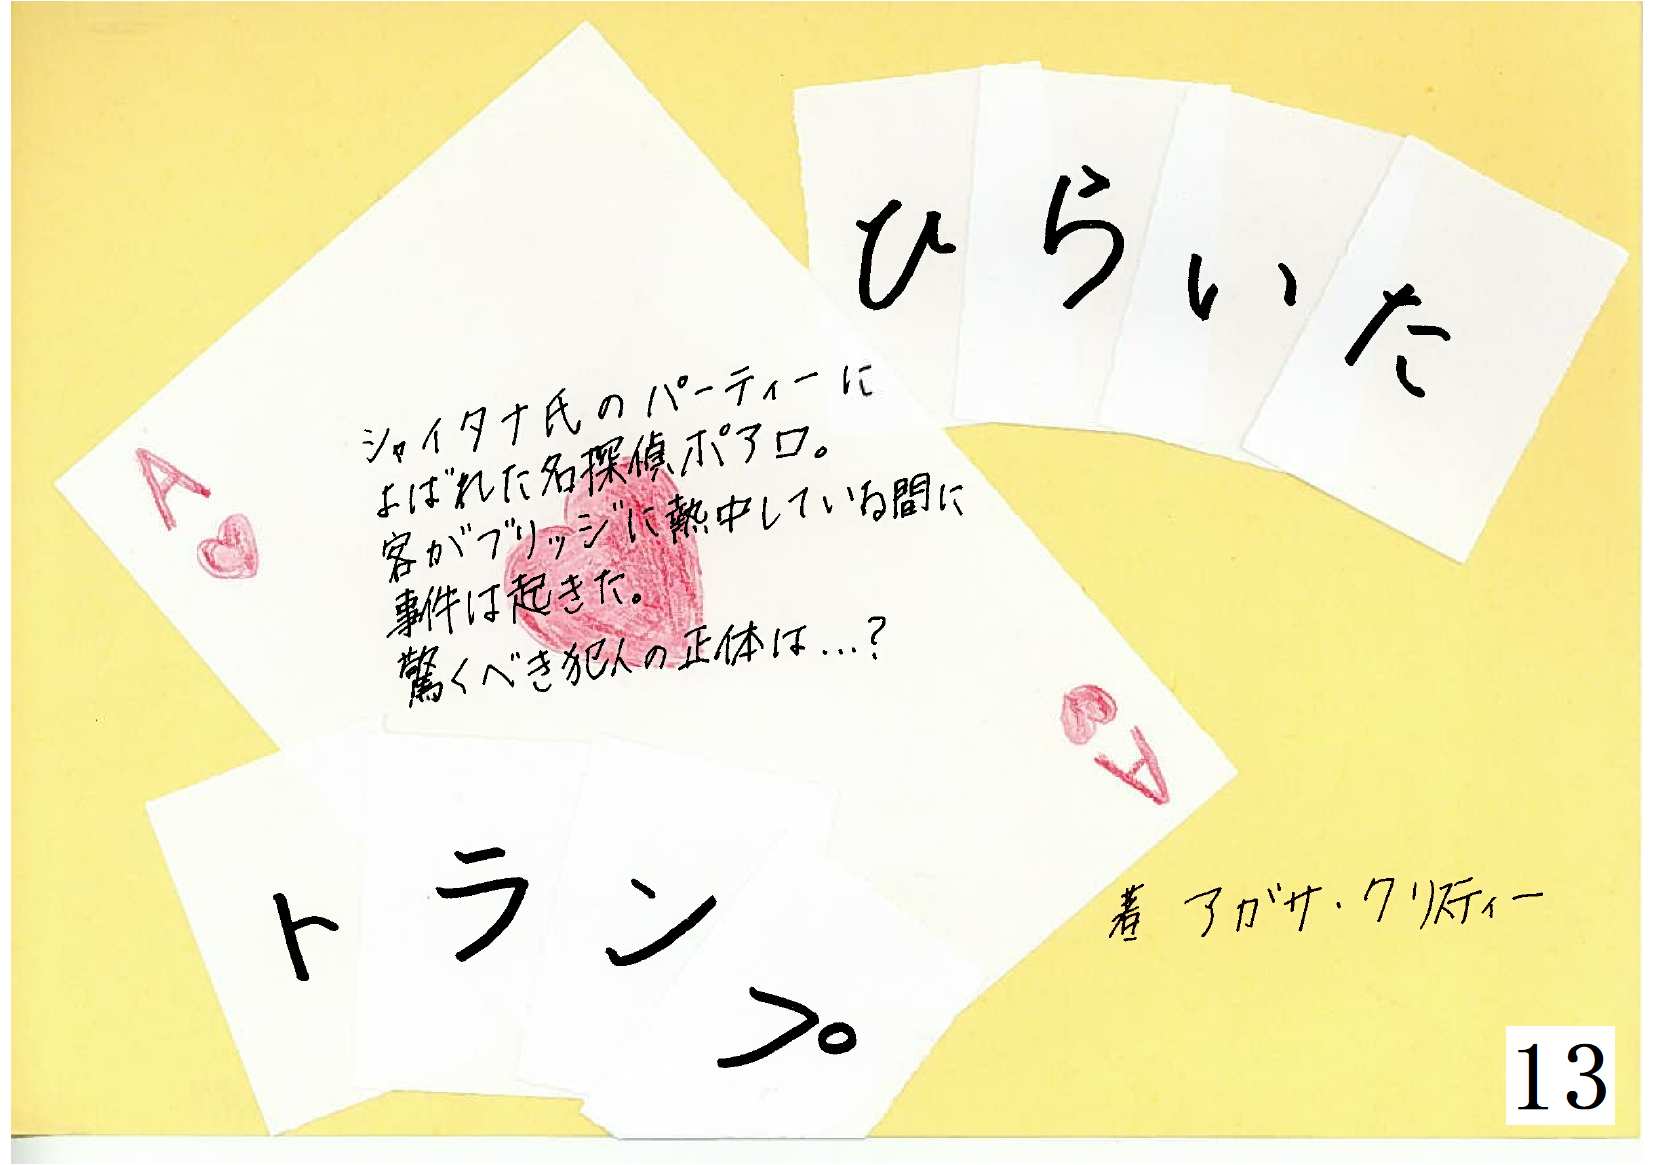 ひらいた
トランプ
A
シャイタナ氏のパーティーに
よばれた名探偵ポアロ。
客がブリッジに熱中している間に
事件は起きた。
驚くべき犯人の正体は…?
A
著 アガサ・クリスティー
13